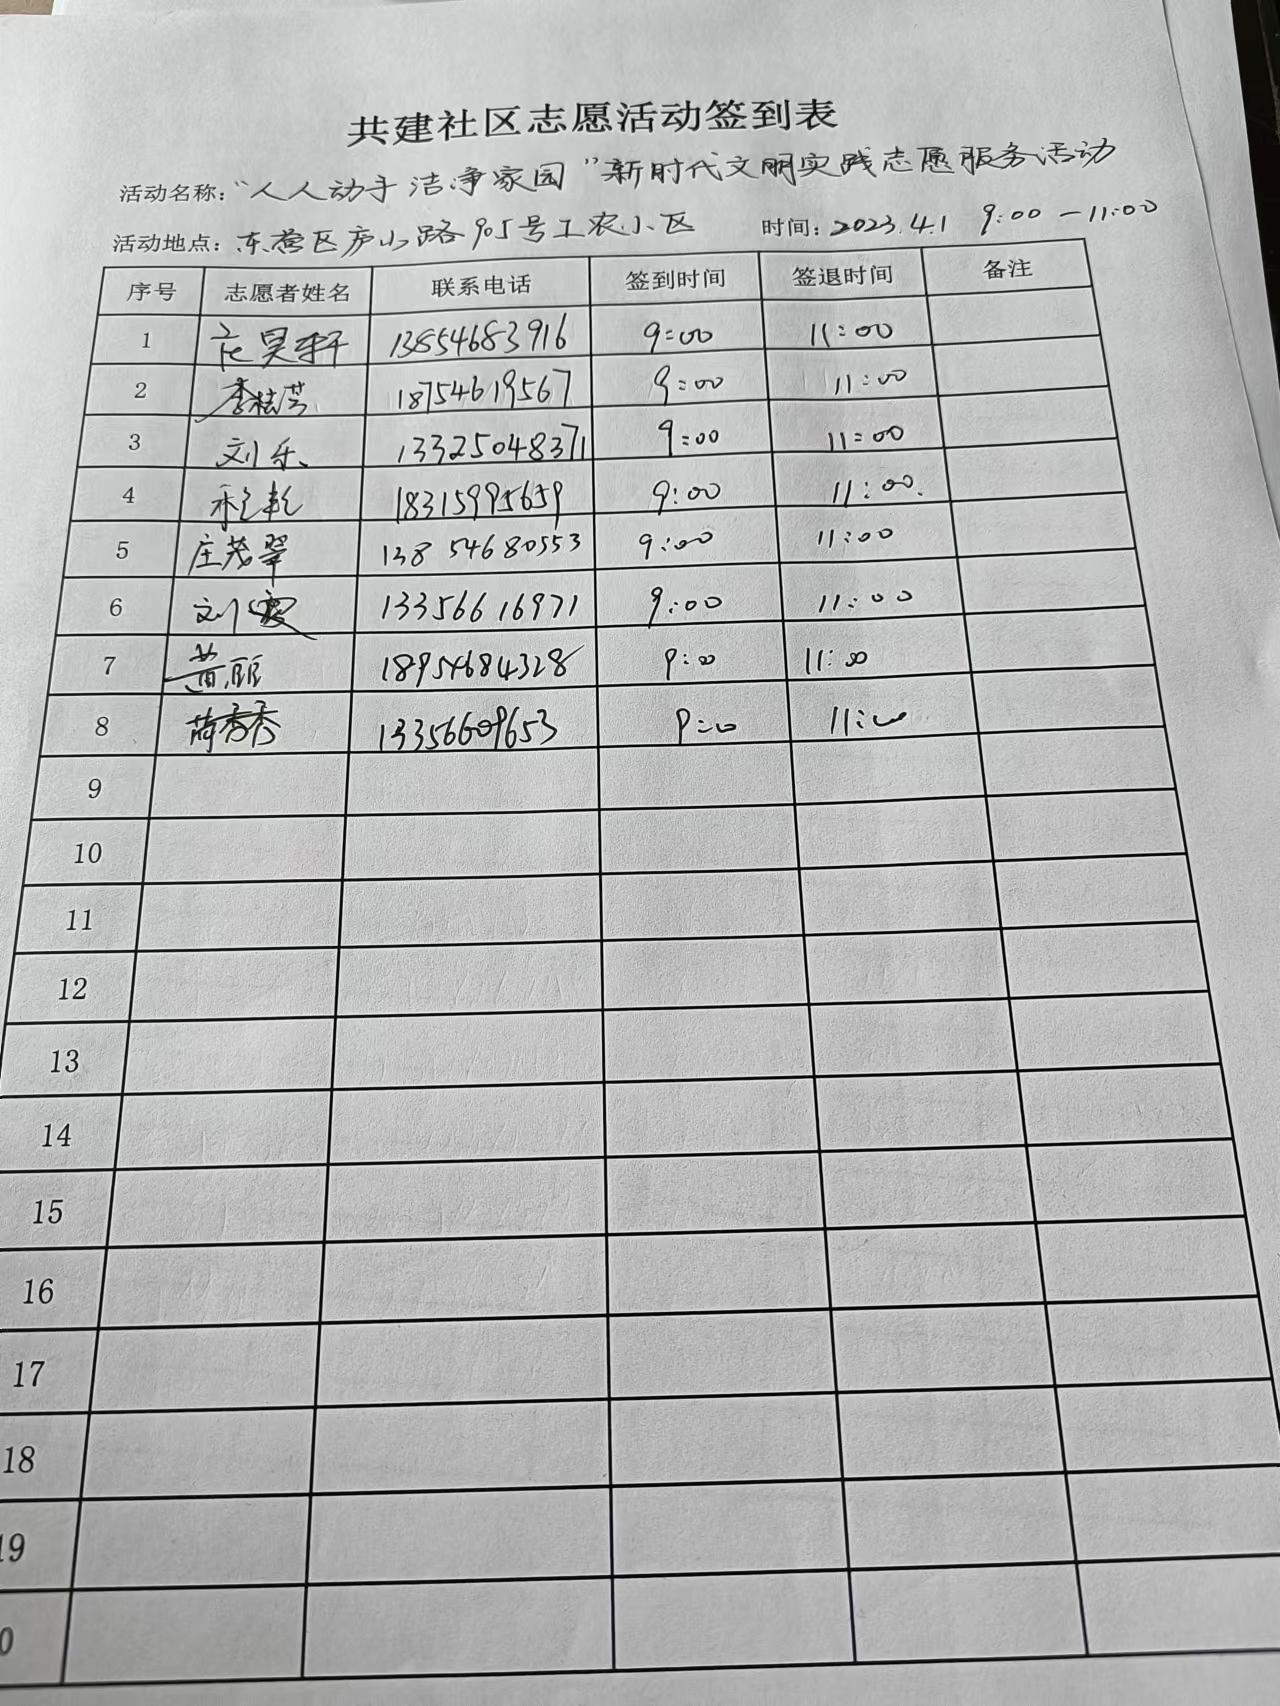 共建社区志愿活动签到表
活动名称：“人人动手 洁净家园”新时代文明实践志愿服务活动
活动地点：东营区庐山路905号工农小区 时间：2023.4.1 9:00-11:00
序号 志愿者姓名 联系电话 签到时间 签退时间 备注
1 昊轩 13854683916 9:00 11:00
2 李桂芳 18754619567 9:00 11:00
3 刘乐 13325048371 9:00 11:00
4 18315995659 9:00 11:00.
5 庄茂翠 13854680553 9:00 11:00
6 刘 13356616971 9:00 11:00
7 黄丽 18954684328 9:00 11:00
8 蒋秀秀 13356609653 9:00 11:00
9
10
11
12
13
14
15
16
17
18
19
0